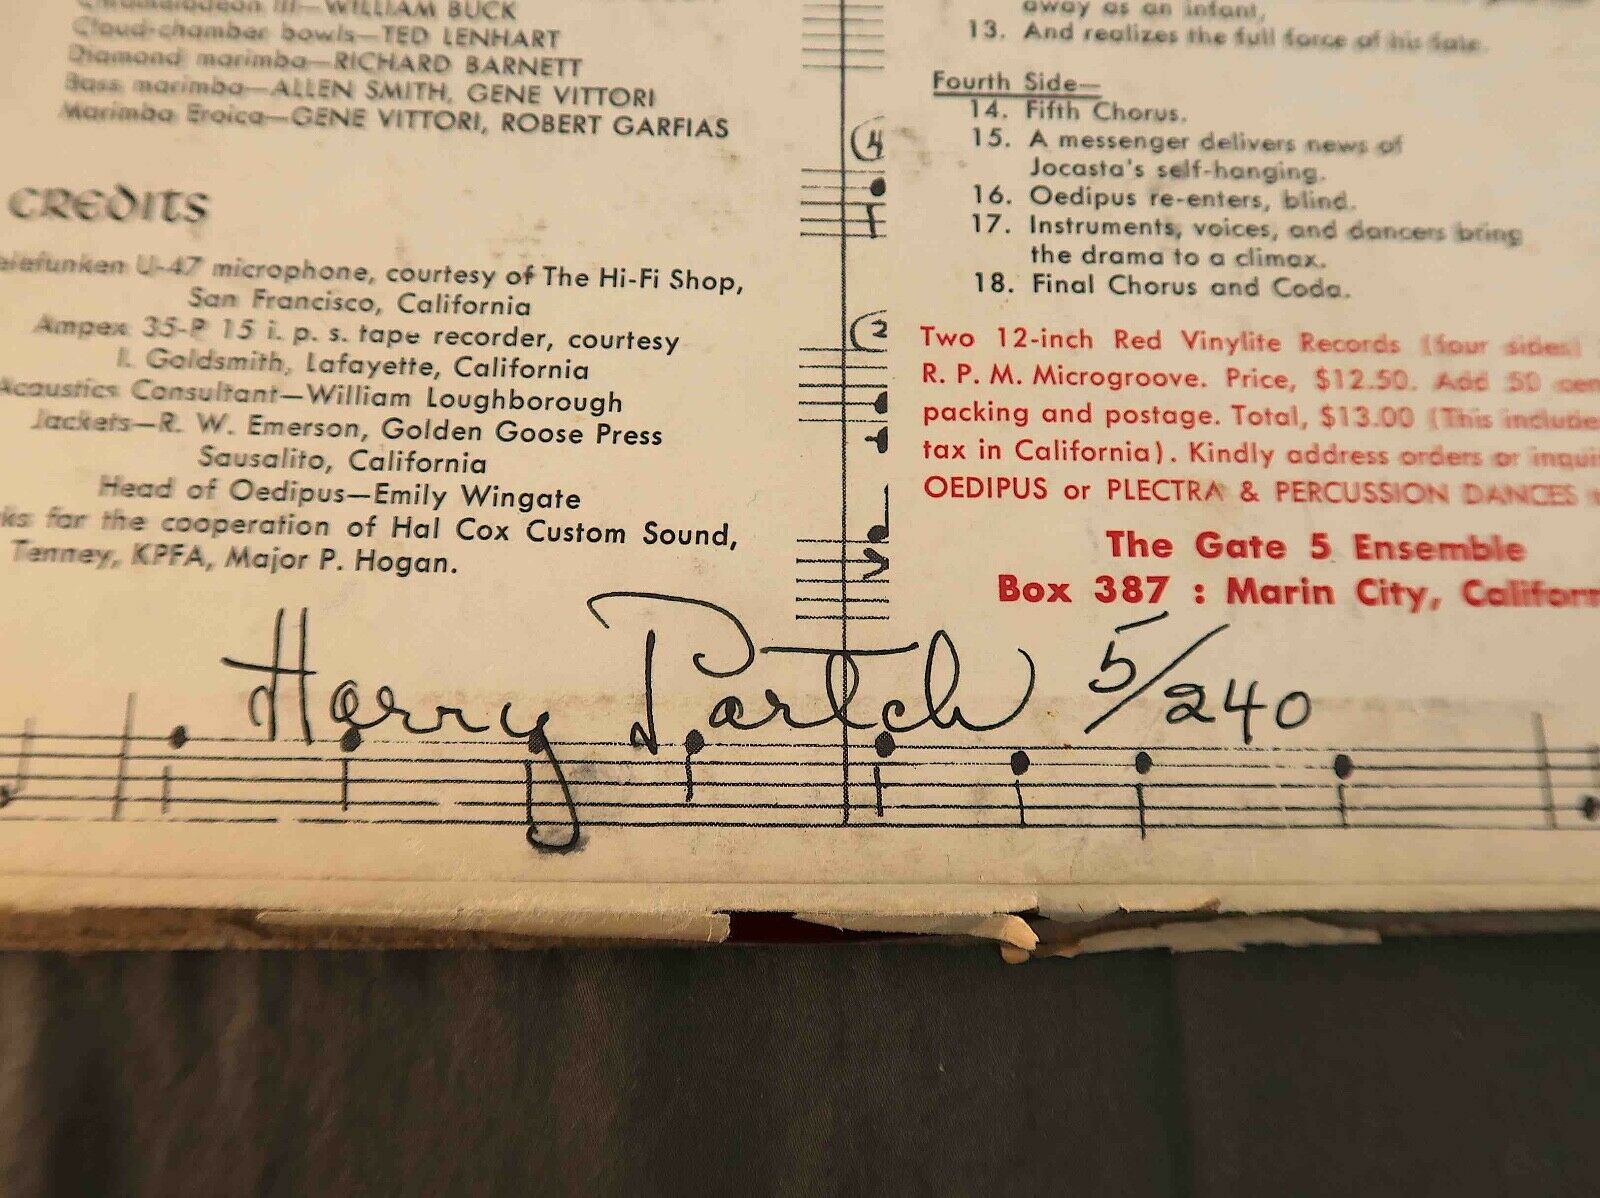 III—WILLIAM BUCK
Cloud-chamber bowls—TED LENHART
Diamond marimba—RICHARD BARNETT
Bass marimba—ALLEN SMITH, GENE VITTORI
Marimba Eroica—GENE VITTORI, ROBERT GARFIAS
CREDITS
U-47 microphone, courtesy of The Hi-Fi Shop,
San Francisco, California
Ampex 35-P 15 i. p. s. tape recorder, courtesy
I. Goldsmith, Lafayette, California
Acoustics Consultant—William Loughborough
Jackets—R. W. Emerson, Golden Goose Press
Sausalito, California
Head of Oedipus—Emily Wingate
for the cooperation of Hal Cox Custom Sound,
Tenney, KPFA, Major P. Hogan.
4
2
away as an infant,
13. And realizes the full force of his fate.
Fourth Side—
14. Fifth Chorus.
15. A messenger delivers news of
Jocasta's self-hanging.
16. Oedipus re-enters, blind.
17. Instruments, voices, and dancers bring
the drama to a climax.
18. Final Chorus and Coda.
Two 12-inch Red Vinylite Records (four sides)
R. P. M. Microgroove. Price, $12.50. Add 50
packing and postage. Total, $13.00 (This
tax in California). Kindly address orders or
OEDIPUS or PLECTRA & PERCUSSION DANCES
The Gate 5 Ensemble
Box 387 : Marin City,
Harry Partch 5/240